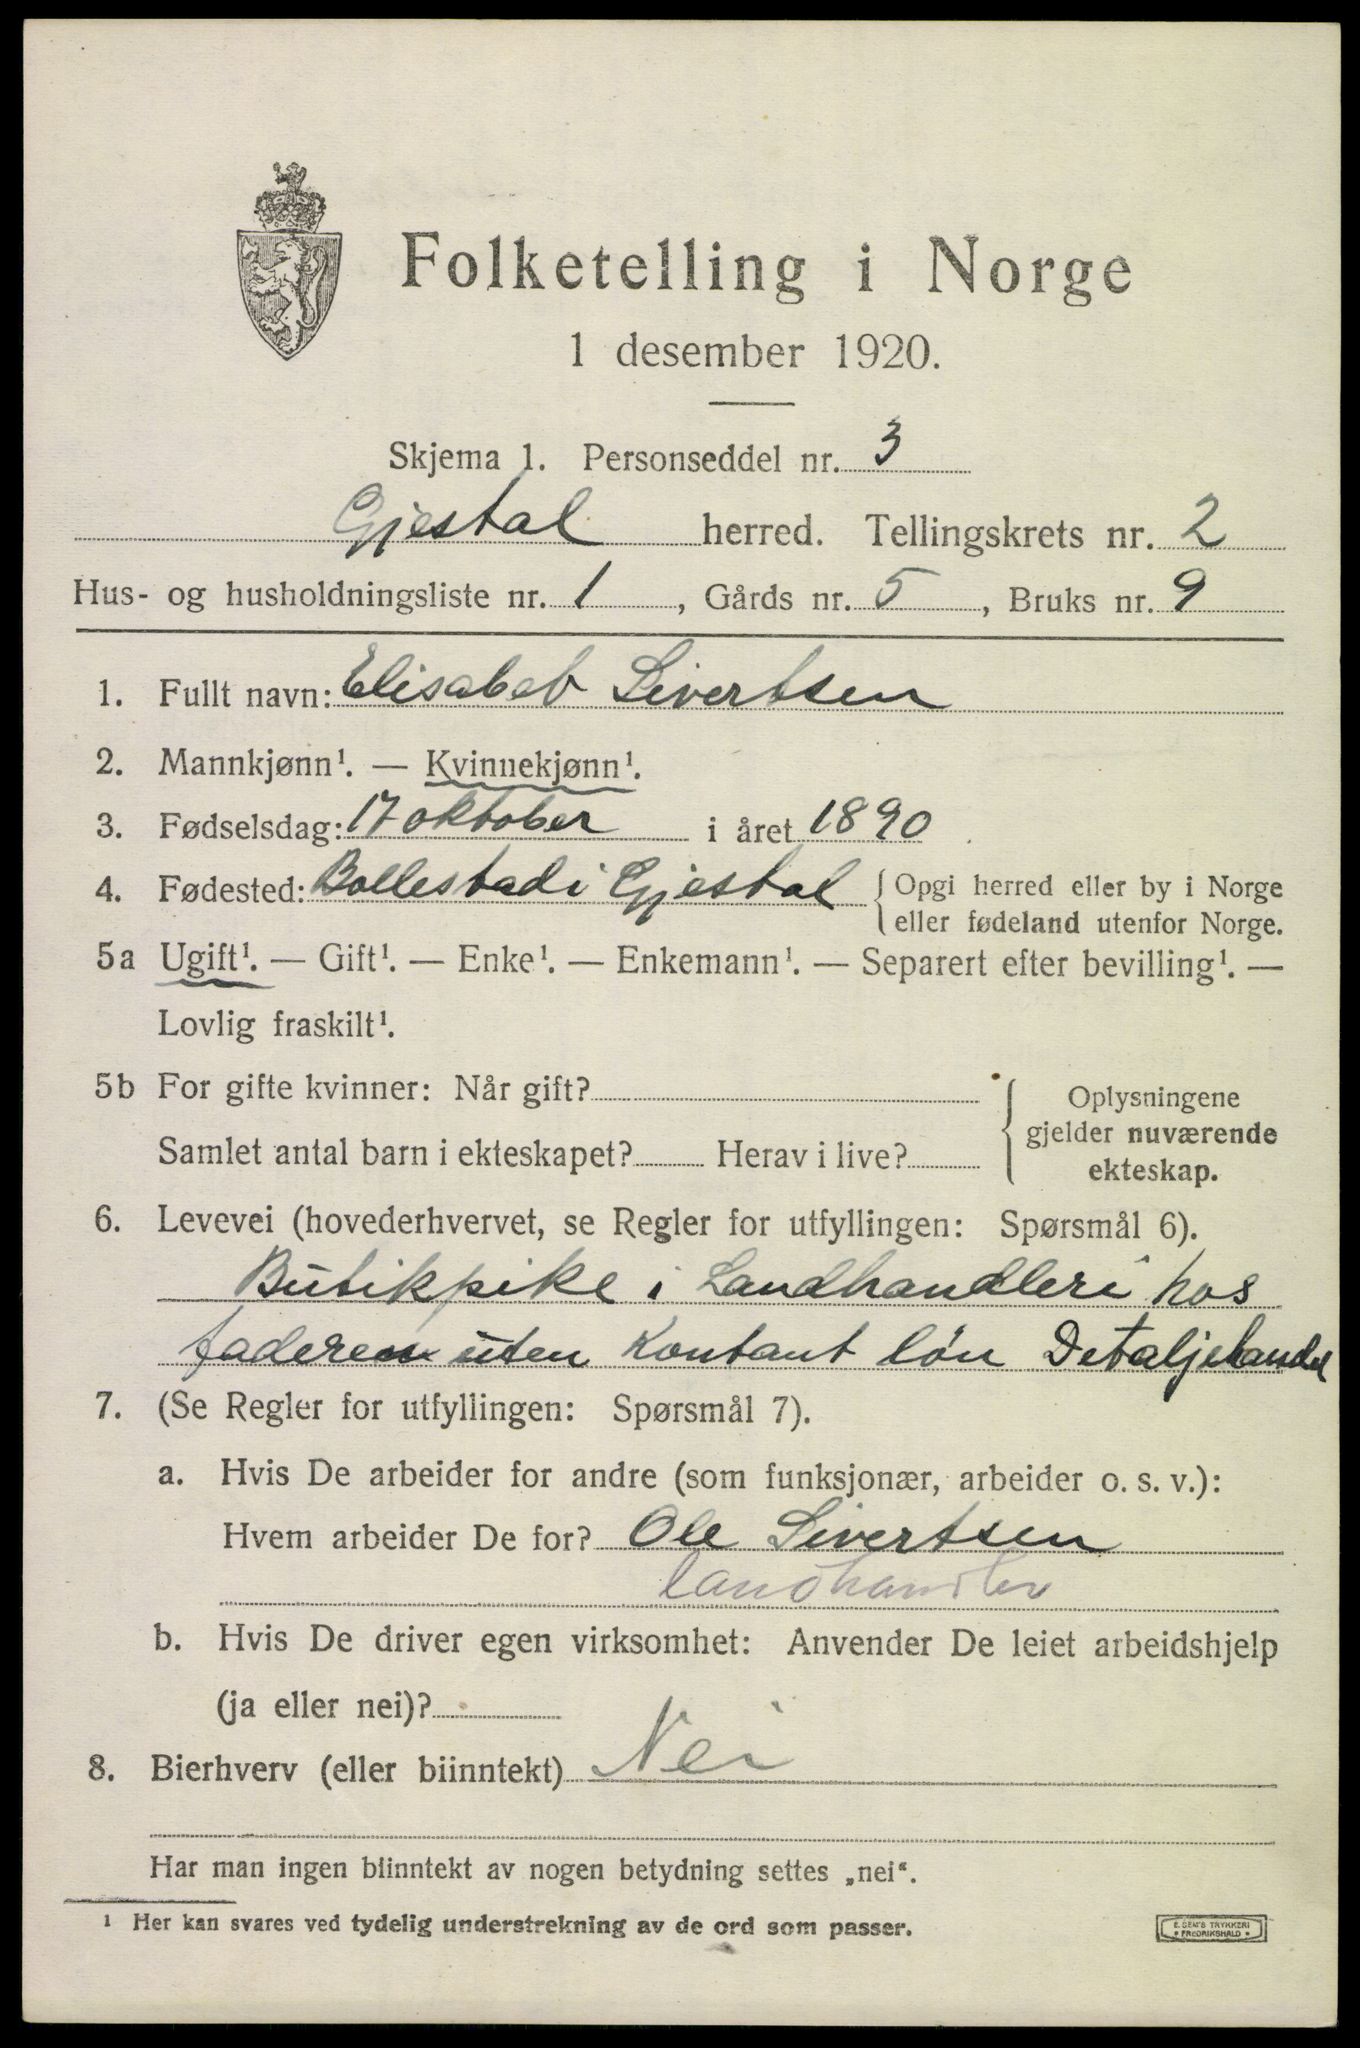 Folketelling i Norge
1 desember 1920.
Skjema 1. Personseddel nr. 3
Gjestal herred. Tellingskrets nr. 2
Hus- og husholdningsliste nr. 1, Gårds nr. 5, Bruks nr. 9
1. Fullt navn: Elisabet Sivertsen
2. Mannkjønn¹. — Kvinnekjønn¹.
3. Fødselsdag: 17 oktober i året 1890.
4. Fødested: Bollestad i Gjestal { Opgi herred eller by i Norge
eller fødeland utenfor Norge.
5a Ugift¹. — Gift¹. — Enke¹. — Enkemann¹. — Separert efter bevilling¹. —
Lovlig fraskilt¹.
5b For gifte kvinner: Når gift?
Samlet antal barn i ekteskapet? Herav i live?
Oplysningene
gjelder nuværende
ekteskap.
6. Levevei (hovederhvervet, se Regler for utfyllingen: Spørsmål 6).
Butikpike i Landhandleri hos
faderen uten Kontant løn Detaljehandel
7. (Se Regler for utfyllingen: Spørsmål 7).
a. Hvis De arbeider for andre (som funksjonær, arbeider o. s. v.):
Hvem arbeider De for? Ole Sivertsen
landhandler
b. Hvis De driver egen virksomhet: Anvender De leiet arbeidshjelp
(ja eller nei)?
8. Bierhverv (eller biinntekt) Nei
Har man ingen biinntekt av nogen betydning settes „nei“.
¹ Her kan svares ved tydelig understrekning av de ord som passer.
E. SEMS TRYKKERI
• FREDRIKSHALD •